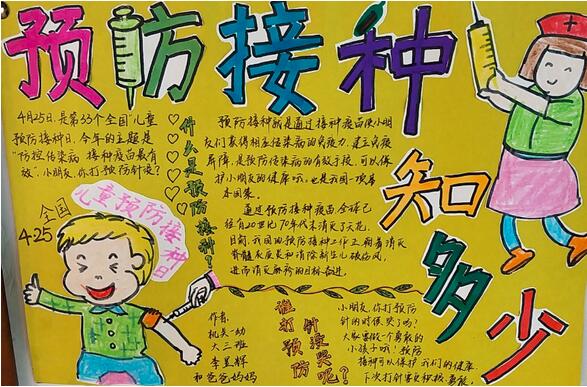 预防接种
知多少
4月25日,是第33个全国"儿童
预防接种日,今年的主题是
"防控传染病 接种疫苗最有
效",小朋友,你打预防针没?
全国
4.25
儿童预防接种日
什么是预防接种?
预防接种就是通过接种疫苗使小朋
友们获得相应传染病的免疫力,建立免疫
屏障,是预防传染病的有效手段,可以保
护小朋友的健康哦,也是我国一项基
本国策。
通过预防接种疫苗,全球已
经有20世纪70年代末消灭了天花,
目前,我国的预防接种工作正朝着消灭
脊髓灰质炎和消除新生儿破伤风,
进而消灭麻疹的目标奋进。
作者:
机关一幼
大三班
李昱辉
和爸爸妈妈
谁打预防
针没哭呢?
小朋友,你打预防
针的时候哭了吗?
大家要做一个勇敢的
小孩子哦!预防
接种可以保护我们的健康
下次打针要更积极、勇敢。